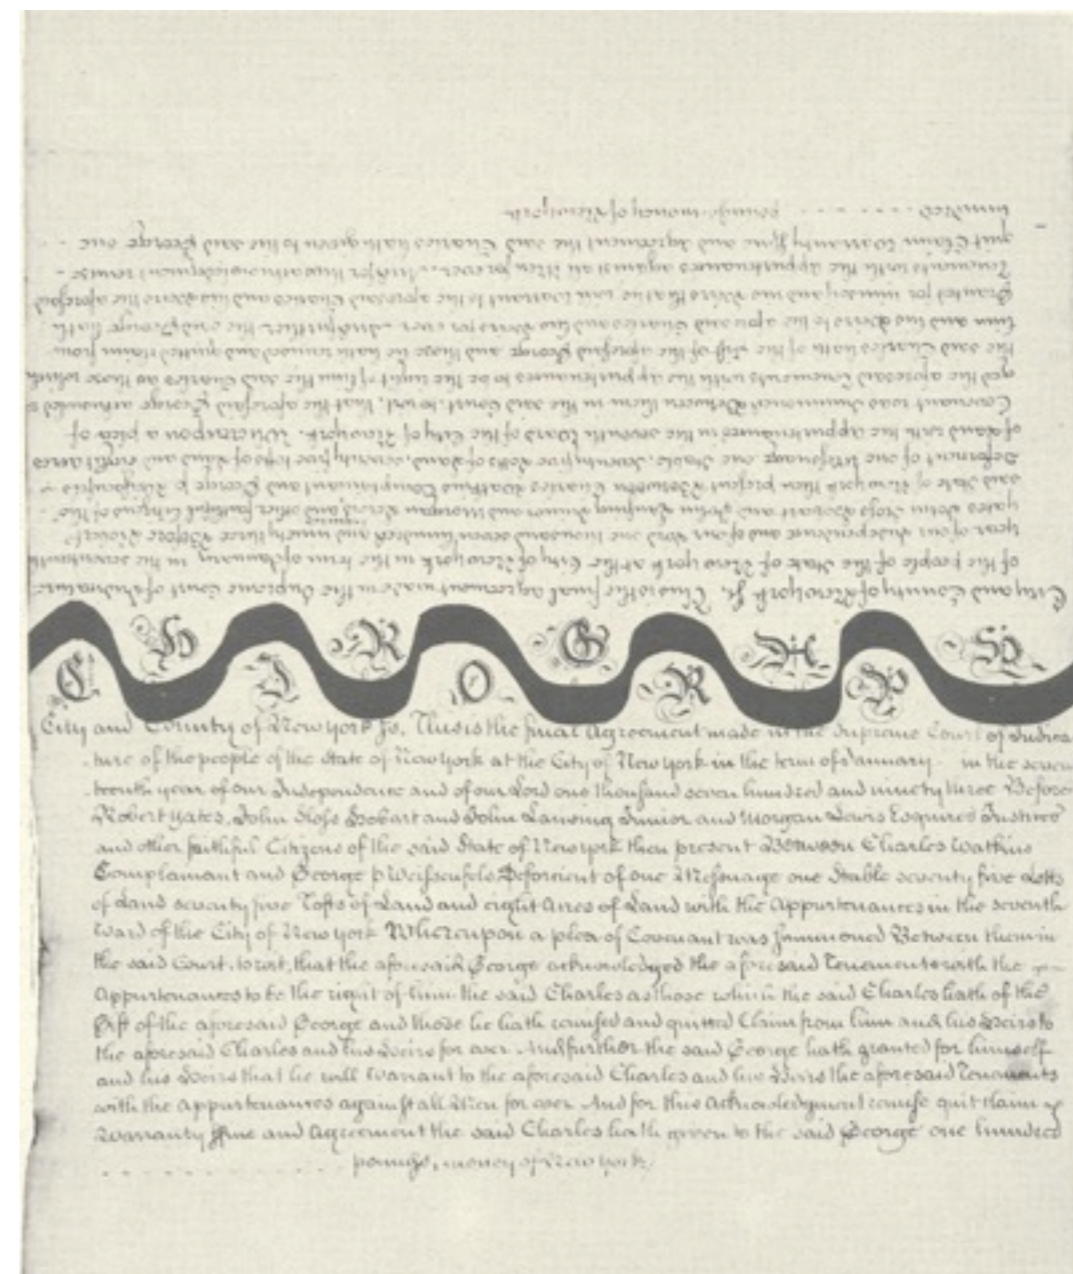 City and County of New York Ss. This is the final agreement made in the Supreme Court of Judicature
of the people of the State of New York at the City of New York in the term of January in the seventeenth
year of our Independence and of our Lord one thousand seven hundred and ninety three Before Robert
Yates John Sloss Hobart and John Lansing Junior and Morgan Lewis and other faithful Citizens of the
said State of New York then present Between Charles Watkins Complainant and George p Weissenfels
Deforcient of one Messuage one Stable, Seventy five Lotts of Land, seventy five tofts of Land and eight acres
of Land with the appurtenances in the seventh Ward of the City of New York. Whereupon a plea of
Covenant was Summoned Between them in the said Court, to wit, that the aforesaid George acknowled
ged the aforesaid Tenements with the appurtenances to be the right of him the said Charles as those which
the said Charles hath of the Gift of the aforesaid George and those he hath remised and quitted claim from
him and his Heirs to the aforesaid Charles and his Heirs for ever And further the said George hath
Granted for himself and his Heirs that he will Warrant to the aforesaid Charles and his Heirs the aforesaid
Tenements with the appurtenances against all Men for ever. And for this acknowledgment remise
quit Claim Warranty Fine and Agreement the said Charles hath given to the said George one
hundred pounds, money of New York
C H I R O G R A P H
City and County of New York Ss. This is the final Agreement made in the Supreme Court of Judica
ture of the people of the State of New York at the City of New York in the term of January in the seven
teenth year of our Independence and of our Lord one thousand seven hundred and ninety three Before
Robert Yates, John Sloss Hobart and John Lansing Junior and Morgan Lewis Esquires Justices
and other faithful Citizens of the said State of New York then present Between Charles Watkins
Complainant and George p Weissenfels Deforcient of one Messuage one Stable seventy five Lotts
of Land seventy five Tofts of Land and eight Acres of Land with the Appurtenances in the seventh
Ward of the City of New York Whereupon a plea of Covenant was Summoned Between them in
the said Court, to wit, that the aforesaid George acknowledged the aforesaid Tenements with the
Appurtenances to be the right of him the said Charles as those which the said Charles hath of the
Gift of the aforesaid George and those he hath remised and quitted Claim from him and his Heirs to
the aforesaid Charles and his Heirs for ever And further the said George hath granted for himself
and his Heirs that he will Warrant to the aforesaid Charles and his Heirs the aforesaid Tenements
with the Appurtenances against all Men for ever And for this Acknowledgment remise quit claim
Warranty Fine and Agreement the said Charles hath given to the said George one hundred
pounds, money of New York.